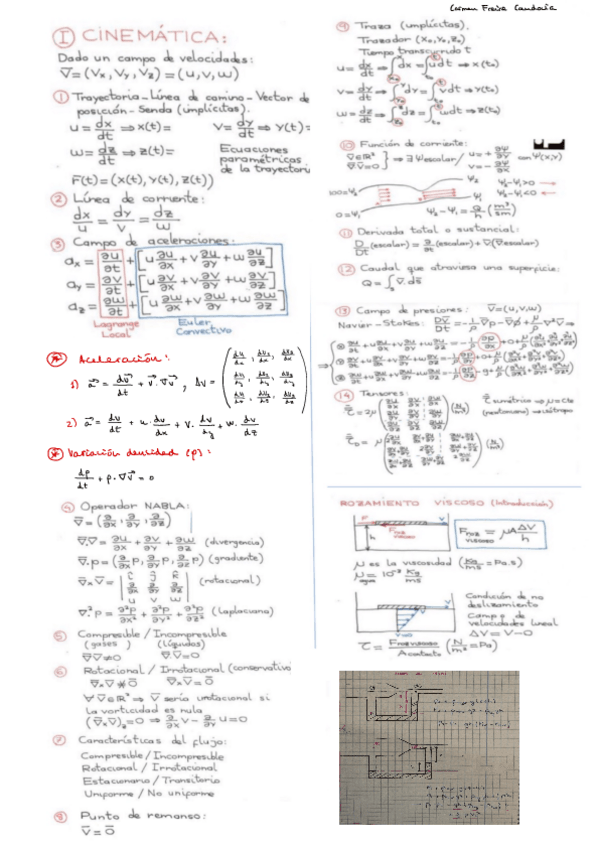 Carmen Freire Candoria
I CINEMÁTICA:
Dado un campo de velocidades:
V̄=(Vx, Vy, Vz)=(u,v,w)
1 Trayectoria - Línea de camino - Vector de
posición - Senda (implícitas).
u = dx/dt ⇒ x(t)= v = dy/dt ⇒ y(t)=
w = dz/dt ⇒ z(t)= Ecuaciones
paramétricas
de la trayectoria
F(t)=(x(t), y(t), z(t))
2 Línea de corriente:
dx/u = dy/v = dz/w
3 Campo de aceleraciones:
ax = ∂u/∂t + [u ∂u/∂x + v ∂u/∂y + w ∂u/∂z]
ay = ∂v/∂t + [u ∂v/∂x + v ∂v/∂y + w ∂v/∂z]
az = ∂w/∂t + [u ∂w/∂x + v ∂w/∂y + w ∂w/∂z]
Lagrange Euler
Local Convectivo
Aceleración:
1) a = dv/dt + v · ∇v, Δv =
2) a = dv/dt + u · dv/dx + v · dv/dy + w · dv/dz
Variación densidad (ρ):
dρ/dt + ρ · ∇v = 0
4 Operador NABLA:
∇̄ = (∂/∂x, ∂/∂y, ∂/∂z)
∇̄·V̄ = ∂u/∂x + ∂v/∂y + ∂w/∂z (divergencia)
∇̄·p = (∂/∂x p, ∂/∂y p, ∂/∂z p) (gradiente)
∇̄×V̄ = | i j k ; ∂/∂x ∂/∂y ∂/∂z ; u v w | (rotacional)
∇²·p = ∂²p/∂x² + ∂²p/∂y² + ∂²p/∂z² (laplaciana)
5 Compresible / Incompresible
(gases) (líquidos)
∇̄·V̄≠0 ∇̄·V̄=0
6 Rotacional / Irrotacional (conservativo
∇̄×V̄≠0̄ ∇̄×V̄=0̄
∀V̄∈R² ⇒ V̄ sería irrotacional si
la vorticidad es nula
(∇̄×V̄)z=0 ⇒ ∂/∂x v - ∂/∂y u = 0
7 Características del flujo:
Compresible / Incompresible
Rotacional / Irrotacional
Estacionario / Transitorio
Uniforme / No uniforme
8 Punto de remanso:
V̄=0̄
9 Traza (implícitas).
Trazador (x0,y0,z0)
Tiempo transcurrido t
u = dx/dt ⇒ ∫dx = ∫u dt ⇒ x(t0)
v = dy/dt ⇒ ∫dy = ∫v dt ⇒ y(t0)
w = dz/dt ⇒ ∫dz = ∫w dt ⇒ z(t0)
10 Función de corriente:
V̄∈R² ∇̄·V̄=0 } ⇒ ∃ Ψ escalar / u = +∂Ψ/∂y v = -∂Ψ/∂x con Ψ(x,y)
100=Ψ2 Ψ2 Ψ2-Ψ1>0
Ψ1 Ψ2-Ψ1<0
0=Ψ1 Ψ2-Ψ1 = Q/h (m³/sm)
11 Derivada total o sustancial:
D/Dt (escalar) = ∂/∂t (escalar) + V̄(∇̄escalar)
12 Caudal que atraviesa una superficie:
Q = ∫s V̄·ds̄
13 Campo de presiones: V̄=(u,v,w)
Navier-Stokes: DV̄/Dt = -1/ρ ∇̄p - ∇̄φ + μ/ρ ∇²V̄ ⇒
14 Tensores:
ROZAMIENTO VISCOSO (Introducción)
F V
F roz viscoso
h
F roz viscoso = μA ΔV/h
μ es la viscosidad (Kg/ms = Pa.s)
μ agua = 10⁻³ Kg/ms
V
V=0
Condición de no
deslizamiento
Campo de
velocidades lineal
ΔV = V-0
τ = F roz viscoso / A contacto (N/m² = Pa)